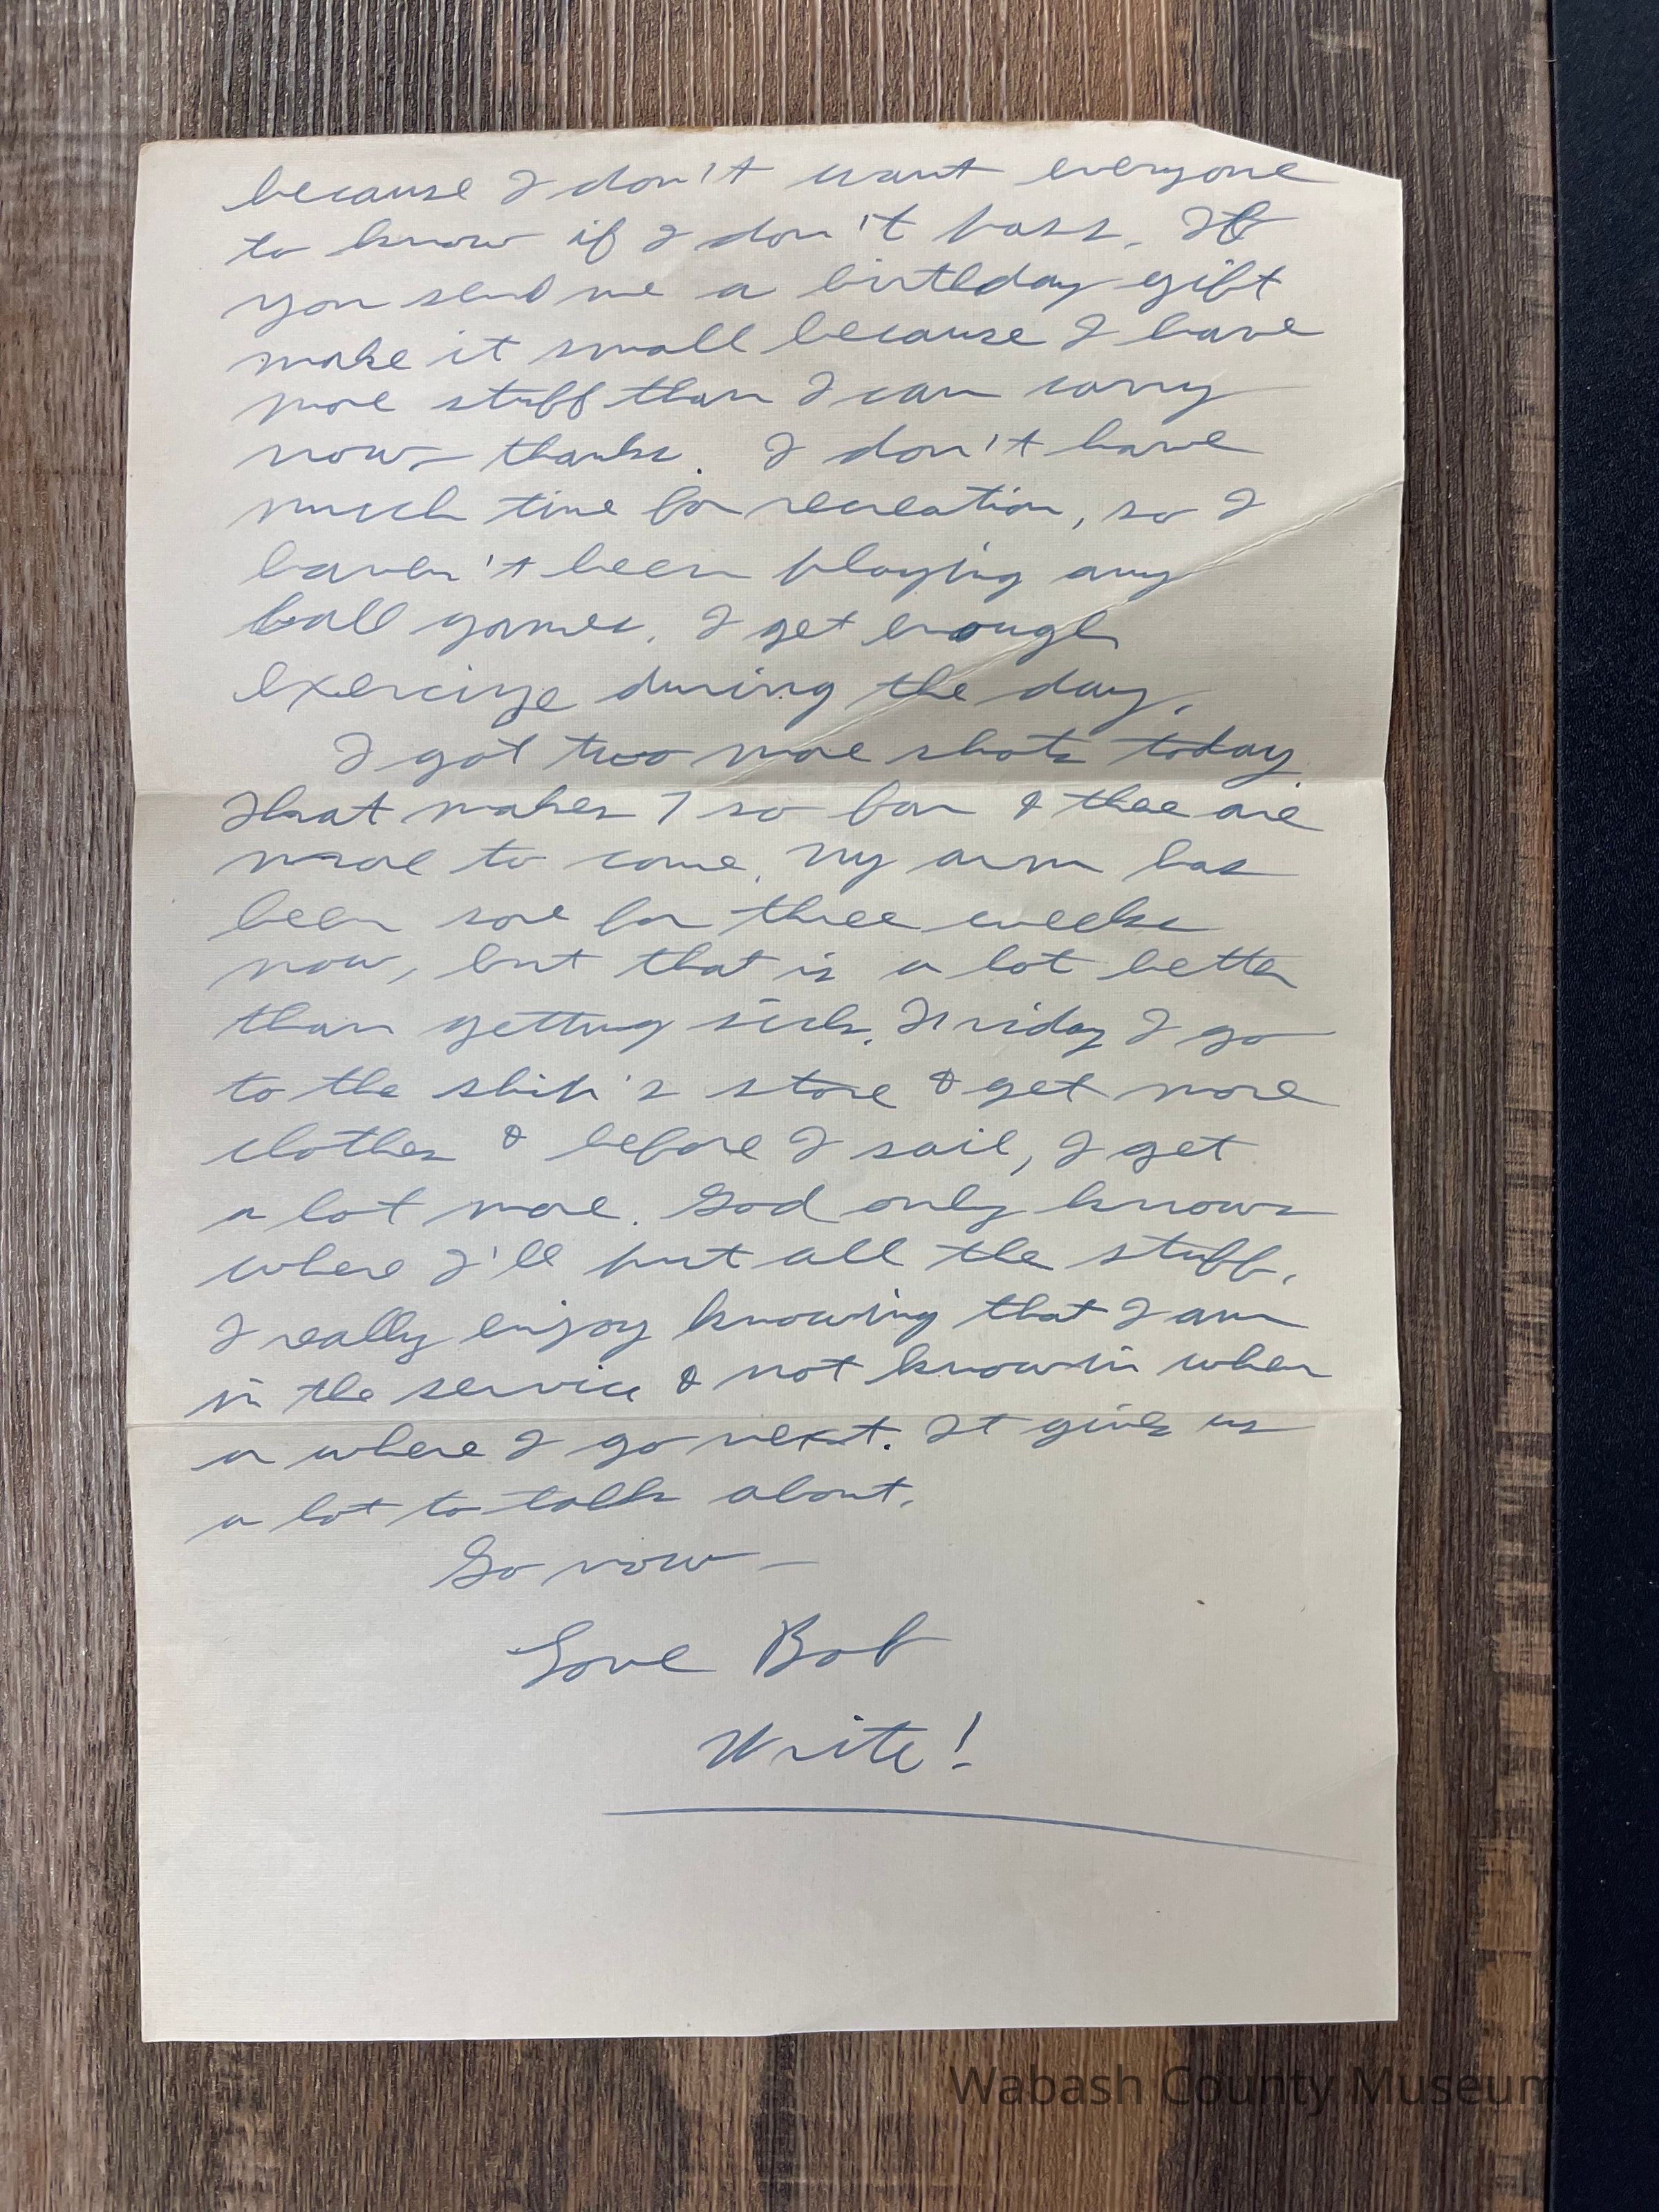 because I don't want everyone
to know if I don't pass. If
you send me a birthday gift
make it small because I have
more stuff than I can carry
now thanks. I don't have
much time for recreation, so I
haven't been playing any
ball games. I get enough
exercize during the day.
I got two more shots today
That makes 7 so far & thee are
more to come. My arm has
been sore for three weeks
now, but that is a lot better
than getting sick. Friday I go
to the ship's store & get more
clothes & before I sail, I get
a lot more. God only knows
where I'll put all the stuff.
I really enjoy knowing that I am
in the service & not knowin when
or where I go next. It gives us
a lot to talk about.
Go now —
Love Bob
Write!
Wabash County Museum